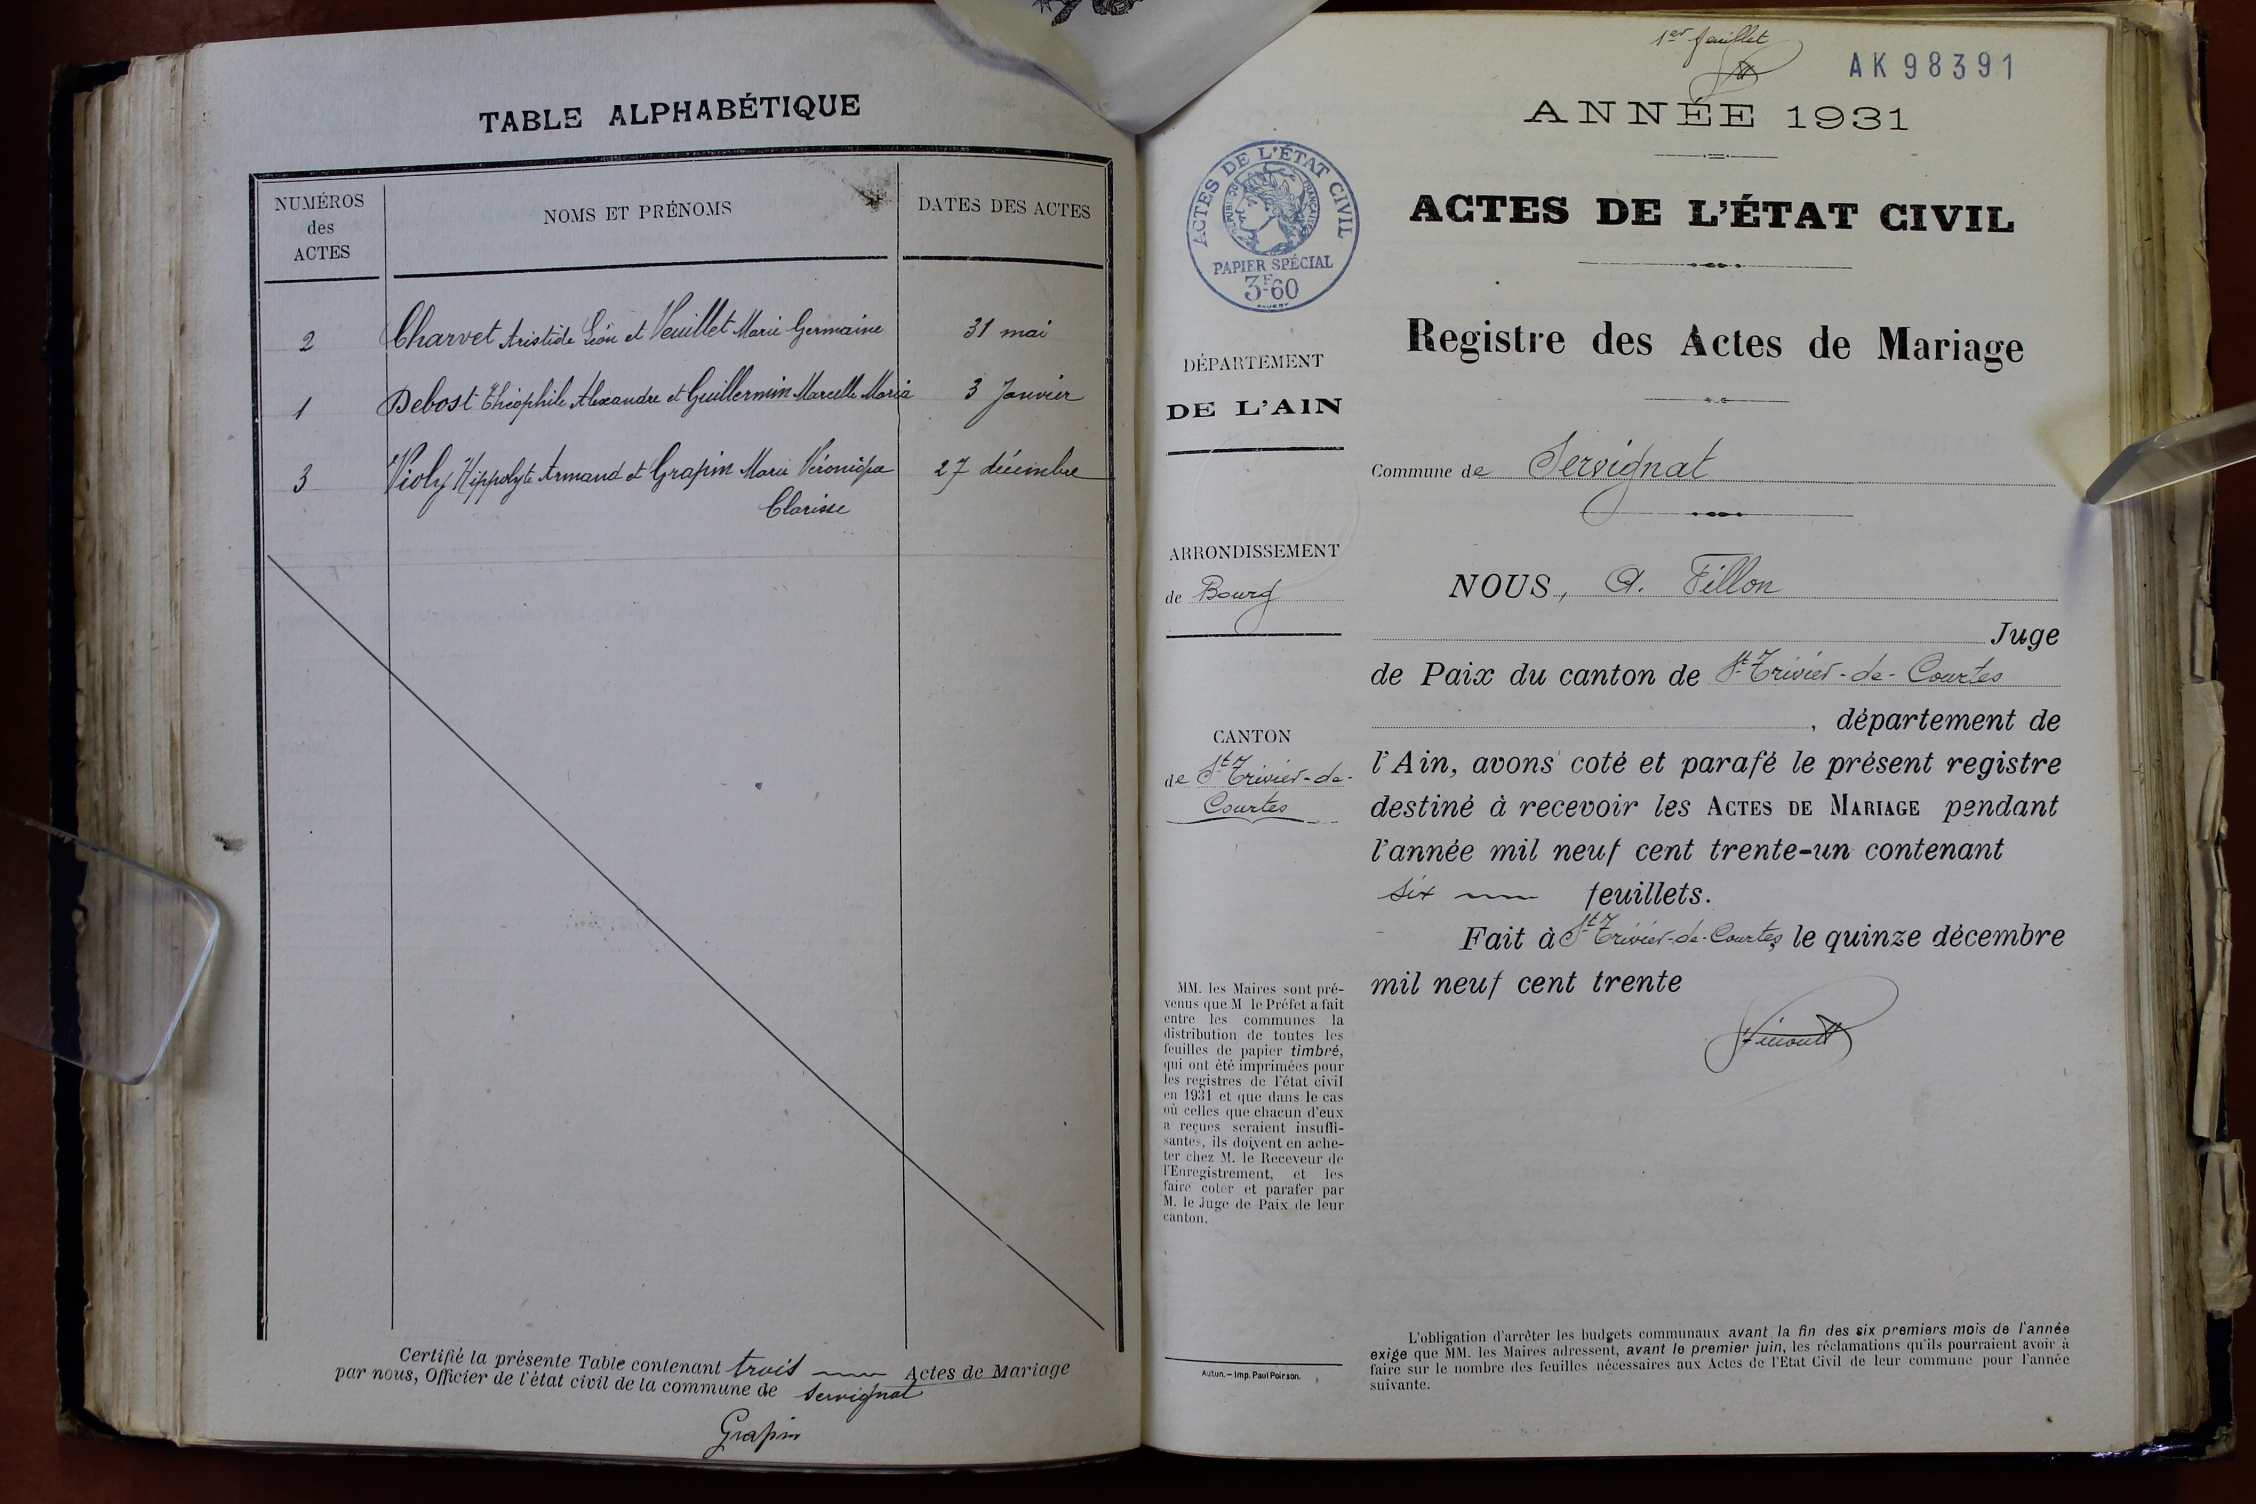 TABLE ALPHABÉTIQUE
NUMÉROS
des
ACTES
NOMS ET PRÉNOMS
DATES DES ACTES
2 Charvet Aristide Léon et Veuillet Marie Germaine 31 mai
1 Debost Théophile Alexandre et Guillermin Marcelle Maria 3 Janvier
3 Violy Hippolyte Armand et Grapin Marie Véronique 27 décembre
Clarisse
Certifié la présente Table contenant trois Actes de Mariage
par nous, Officier de l'état civil de la commune de Servignat
Grapin
1er feuillet
AK98391
ANNÉE 1931
ACTES DE L'ÉTAT CIVIL
RÉPUBLIQUE FRANÇAISE
PAPIER SPÉCIAL
3F60
ACTES DE L'ÉTAT CIVIL
Registre des Actes de Mariage
DÉPARTEMENT
DE L'AIN
Commune de Servignat
ARRONDISSEMENT
de Bourg
CANTON
de St Trivier-de-
Courtes
NOUS, A. Fillon
Juge
de Paix du canton de St Trivier-de-Courtes
, département de
l'Ain, avons coté et parafé le présent registre
destiné à recevoir les ACTES DE MARIAGE pendant
l'année mil neuf cent trente-un contenant
six feuillets.
Fait à St Trivier-de-Courtes, le quinze décembre
mil neuf cent trente
MM. les Maires sont pré-
venus que M le Préfet a fait
entre les communes la
distribution de toutes les
feuilles de papier timbré,
qui ont été imprimées pour
les registres de l'état civil
en 1931 et que dans le cas
où celles que chacun d'eux
a reçues seraient insuffi-
santes, ils doivent en ache-
ter chez M. le Receveur de
l'Enregistrement, et les
faire coter et parafer par
M. le Juge de Paix de leur
canton.
Autun. – Imp. Paul Poirson.
L'obligation d'arrêter les budgets communaux avant la fin des six premiers mois de l'année
exige que MM. les Maires adressent, avant le premier juin, les réclamations qu'ils pourraient avoir à
faire sur le nombre des feuilles nécessaires aux Actes de l'Etat Civil de leur commune pour l'année
suivante.